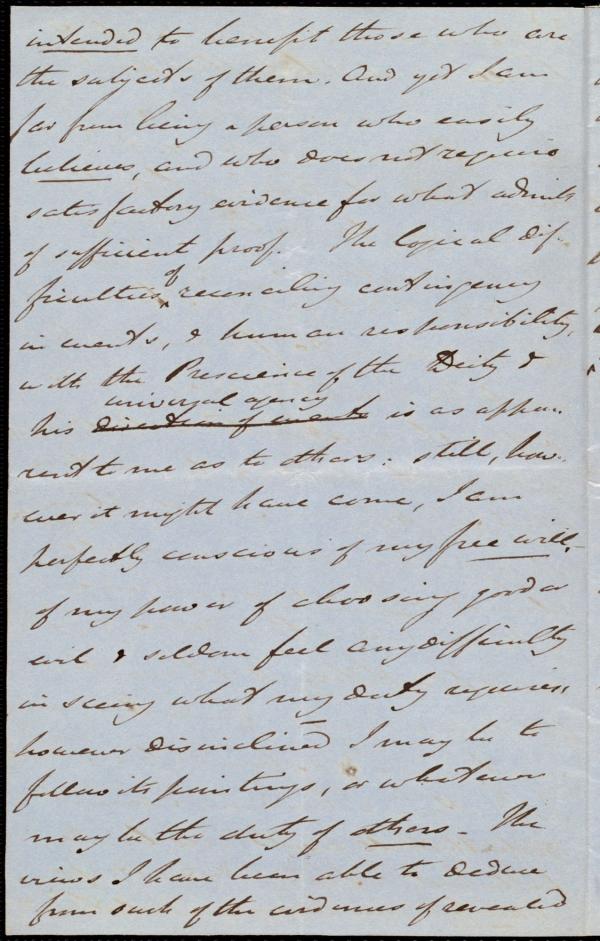 intended to benefit those who are
the subjects of them. And yet I am
far from being a person who easily
believes, and who does not require
satisfactory evidence for what admits
of sufficient proof. The logical dif-
ficulties of reconciling contingency
in events, & human responsibility,
with the Prescience of the Deity &
universal agency
his direction of events is as appa-
rent to me as to others: still, how-
ever it might have come, I am
perfectly conscious of my free will,
of my power of choosing good or
evil & seldom feel any difficulty
in seeing what my duty requires,
however disinclined I may be to
follow its pointings, or whatever
may be the duty of others - The
views I have been able to deduce
from such of the evidences of revealed